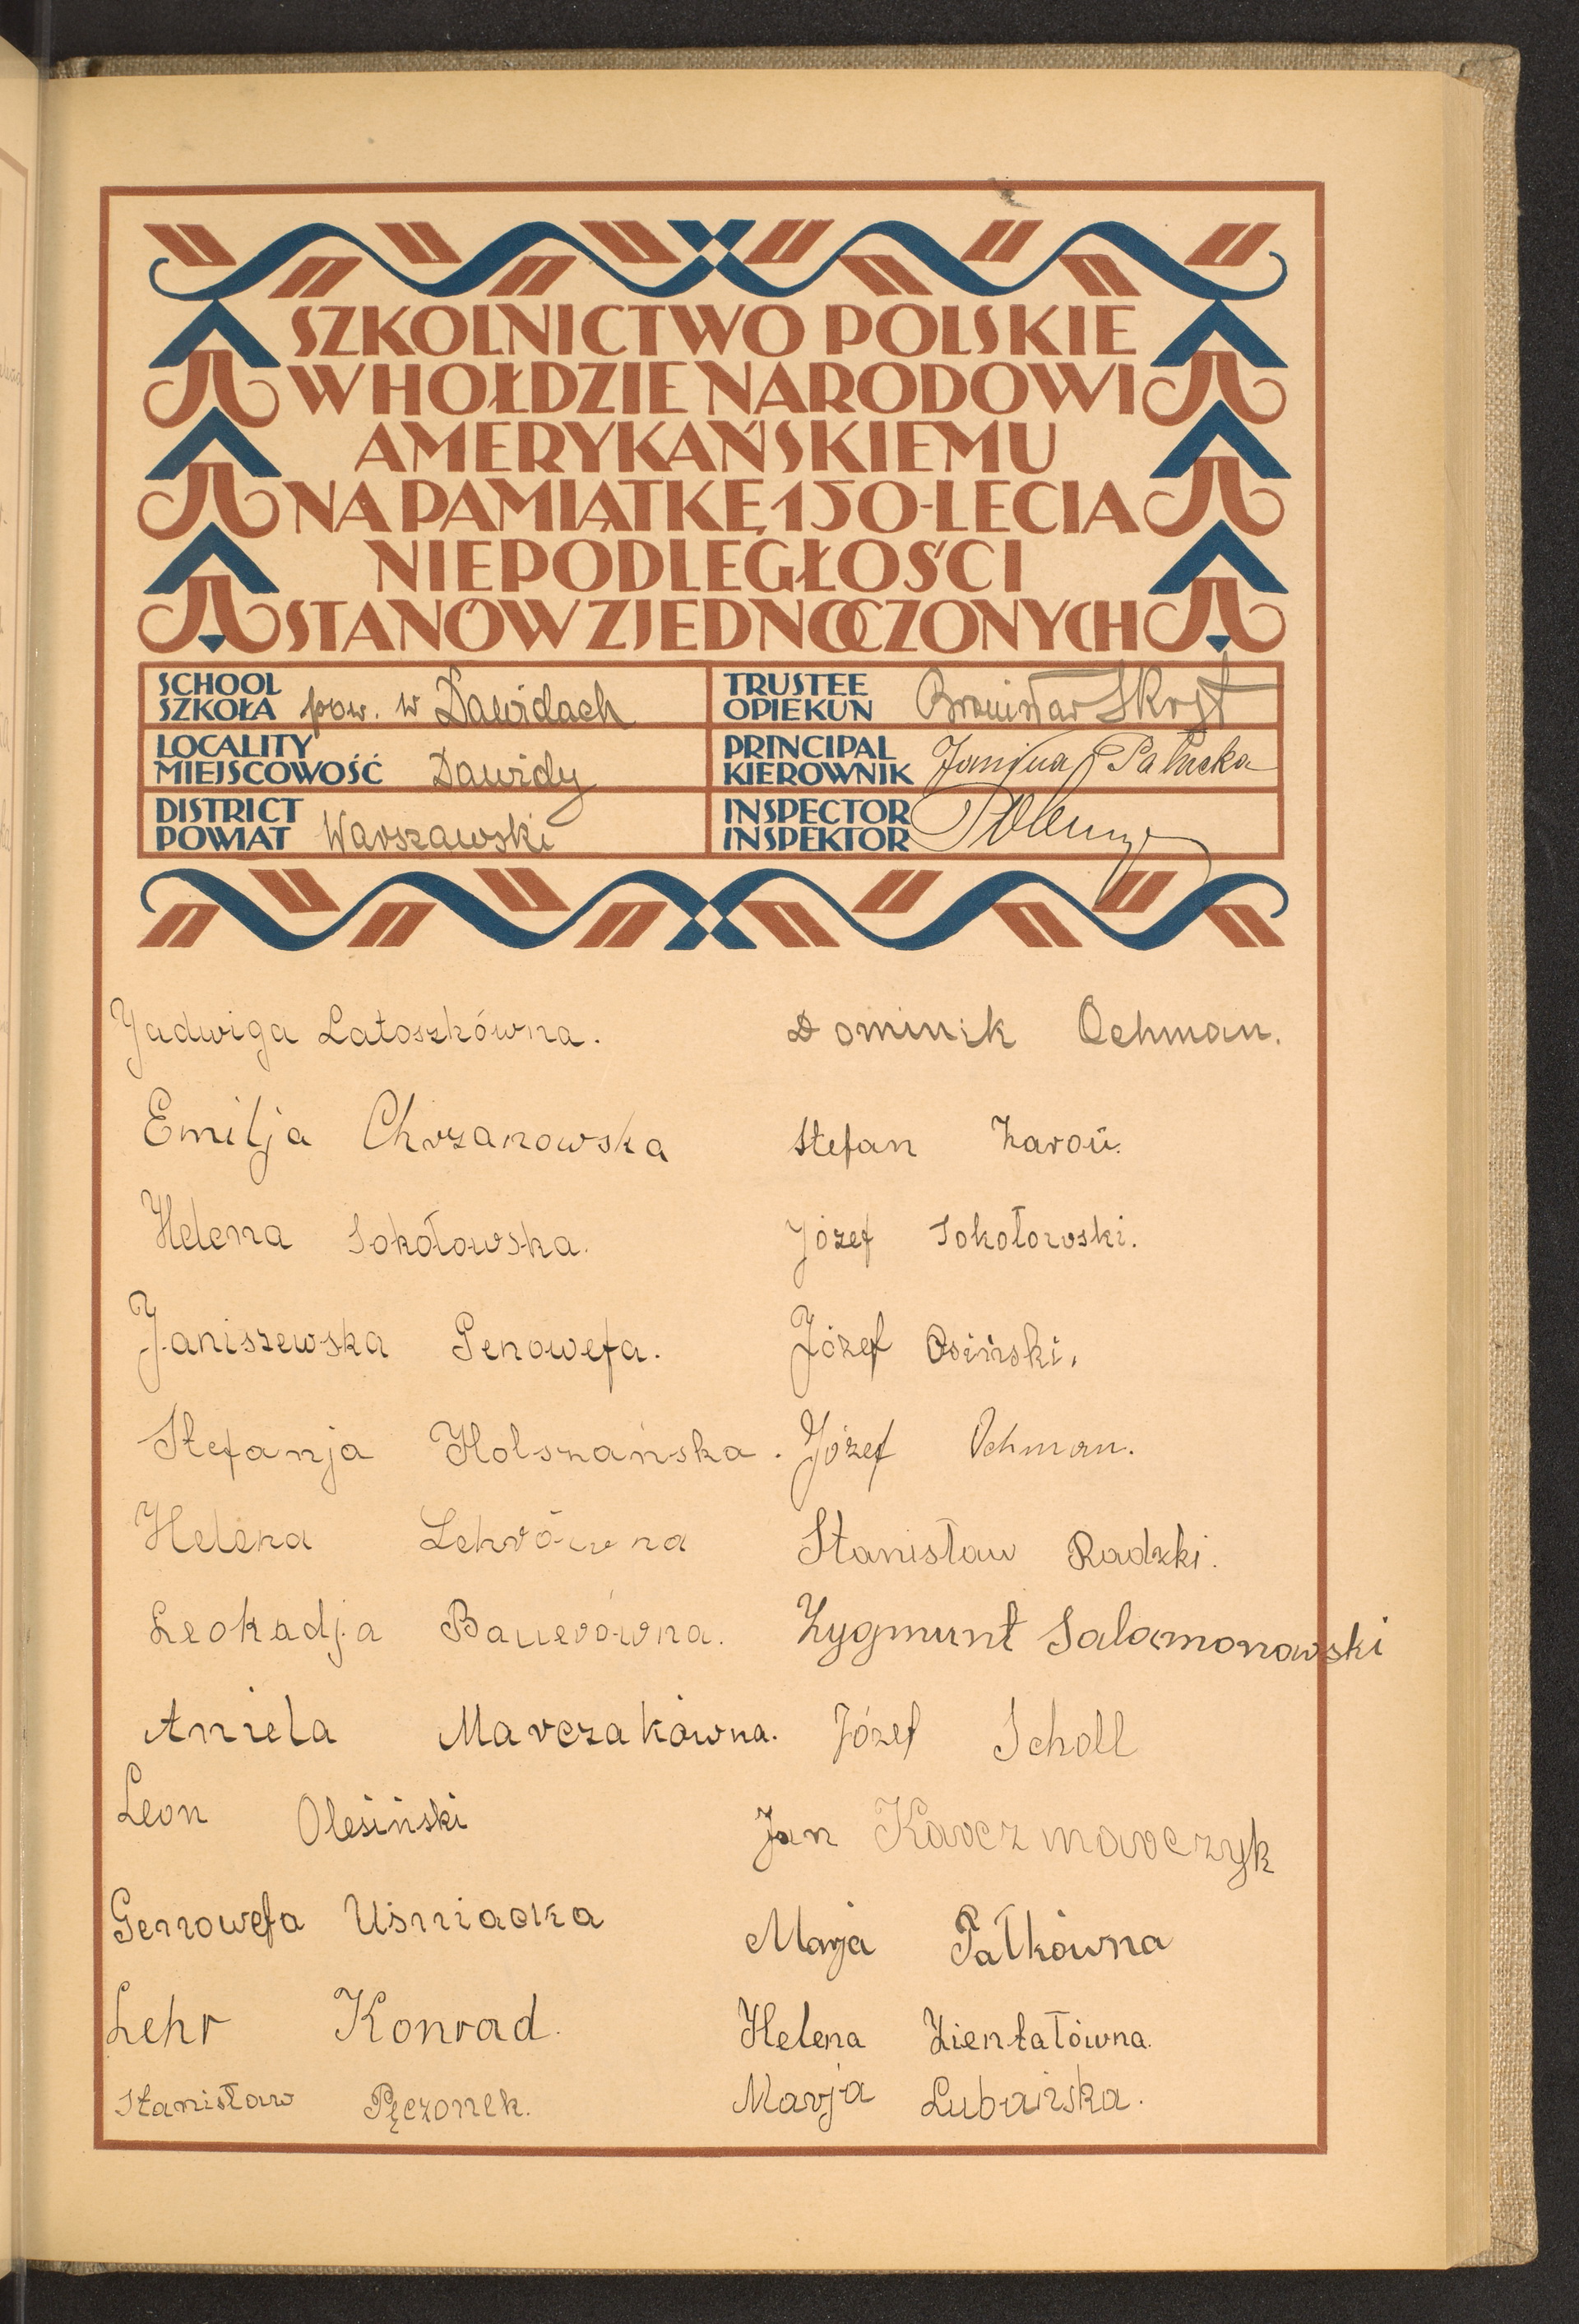 SZKOLNICTWO POLSKIE
W HOŁDZIE NARODOWI
AMERYKAŃSKIEMU
NA PAMIĄTKĘ 150-LECIA
NIEPODLEGŁOŚCI
STANÓW ZJEDNOCZONYCH
SCHOOL
SZKOŁA pow. w Dawidach
TRUSTEE
OPIEKUN
LOCALITY
MIEJSCOWOŚĆ Dawidy
PRINCIPAL
KIEROWNIK Janina
DISTRICT
POWIAT Warszawski
INSPECTOR
INSPEKTOR
Jadwiga Latoszkówna.
Emilja Chrzanowska
Helena Sokołowska.
Janiszewska Genowefa.
Stefanja Holszańska.
Helena Lehrówna
Leokadja Bauerówna.
Aniela Marczakówna.
Leon Olesiński
Genowefa Uśniacka
Lehr Konrad.
Stanisław Pęczonek.
Dominik Ochman.
Stefan Zaroń.
Józef Sokołowski.
Józef Osiński.
Józef Ochman.
Stanisław Radzki.
Zygmunt Salamonowski
Józef Scholl
Jan Karczmarczyk
Marja Pałkówna
Helena Zientałówna.
Marja Lubańska.